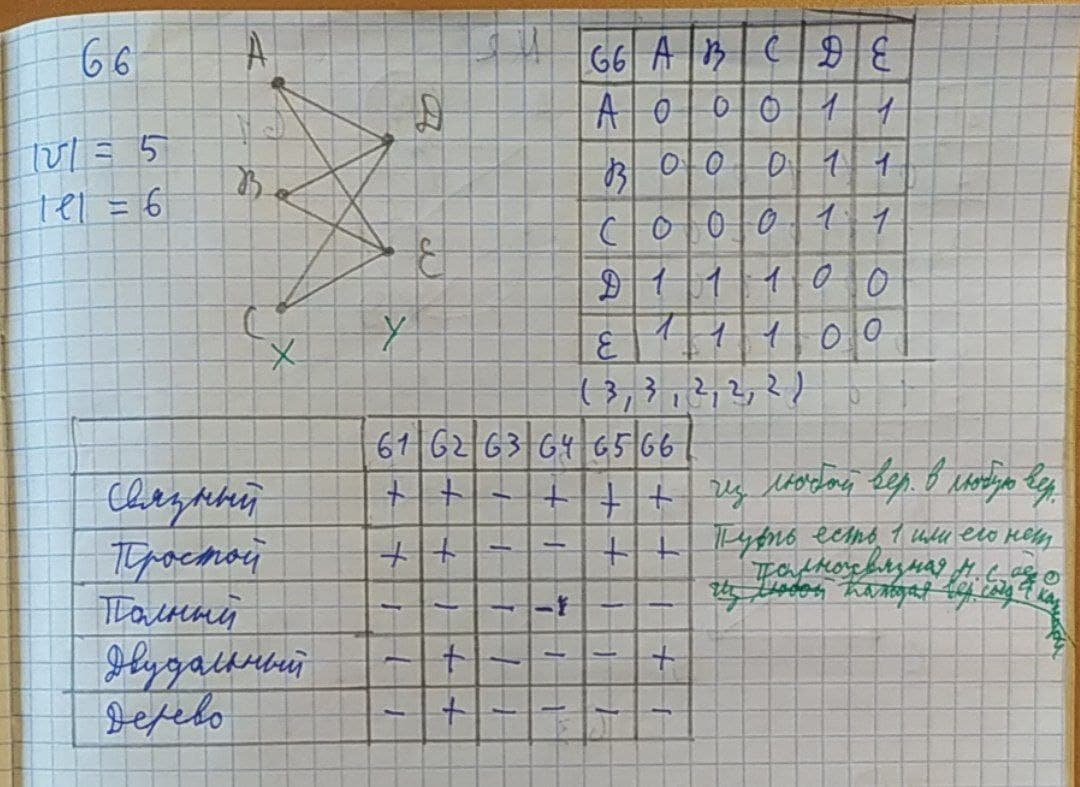 G6
|V| = 5
|e| = 6
A
B
C
D
E
X
Y
G6 A B C D E
A 0 0 0 1 1
B 0 0 0 1 1
C 0 0 0 1 1
D 1 1 1 0 0
E 1 1 1 0 0
(3, 3, 2, 2, 2)
G1 G2 G3 G4 G5 G6
Связный + + - + + +
Простой + + - - + +
Полный - - - - - -
Двудальный - + - - - +
Дерево - + - - - -
из любой вер. в любую вер.
Путь есть 1 или его нет
полносвязная м. с
из любой каждая вер. соед. с каждой